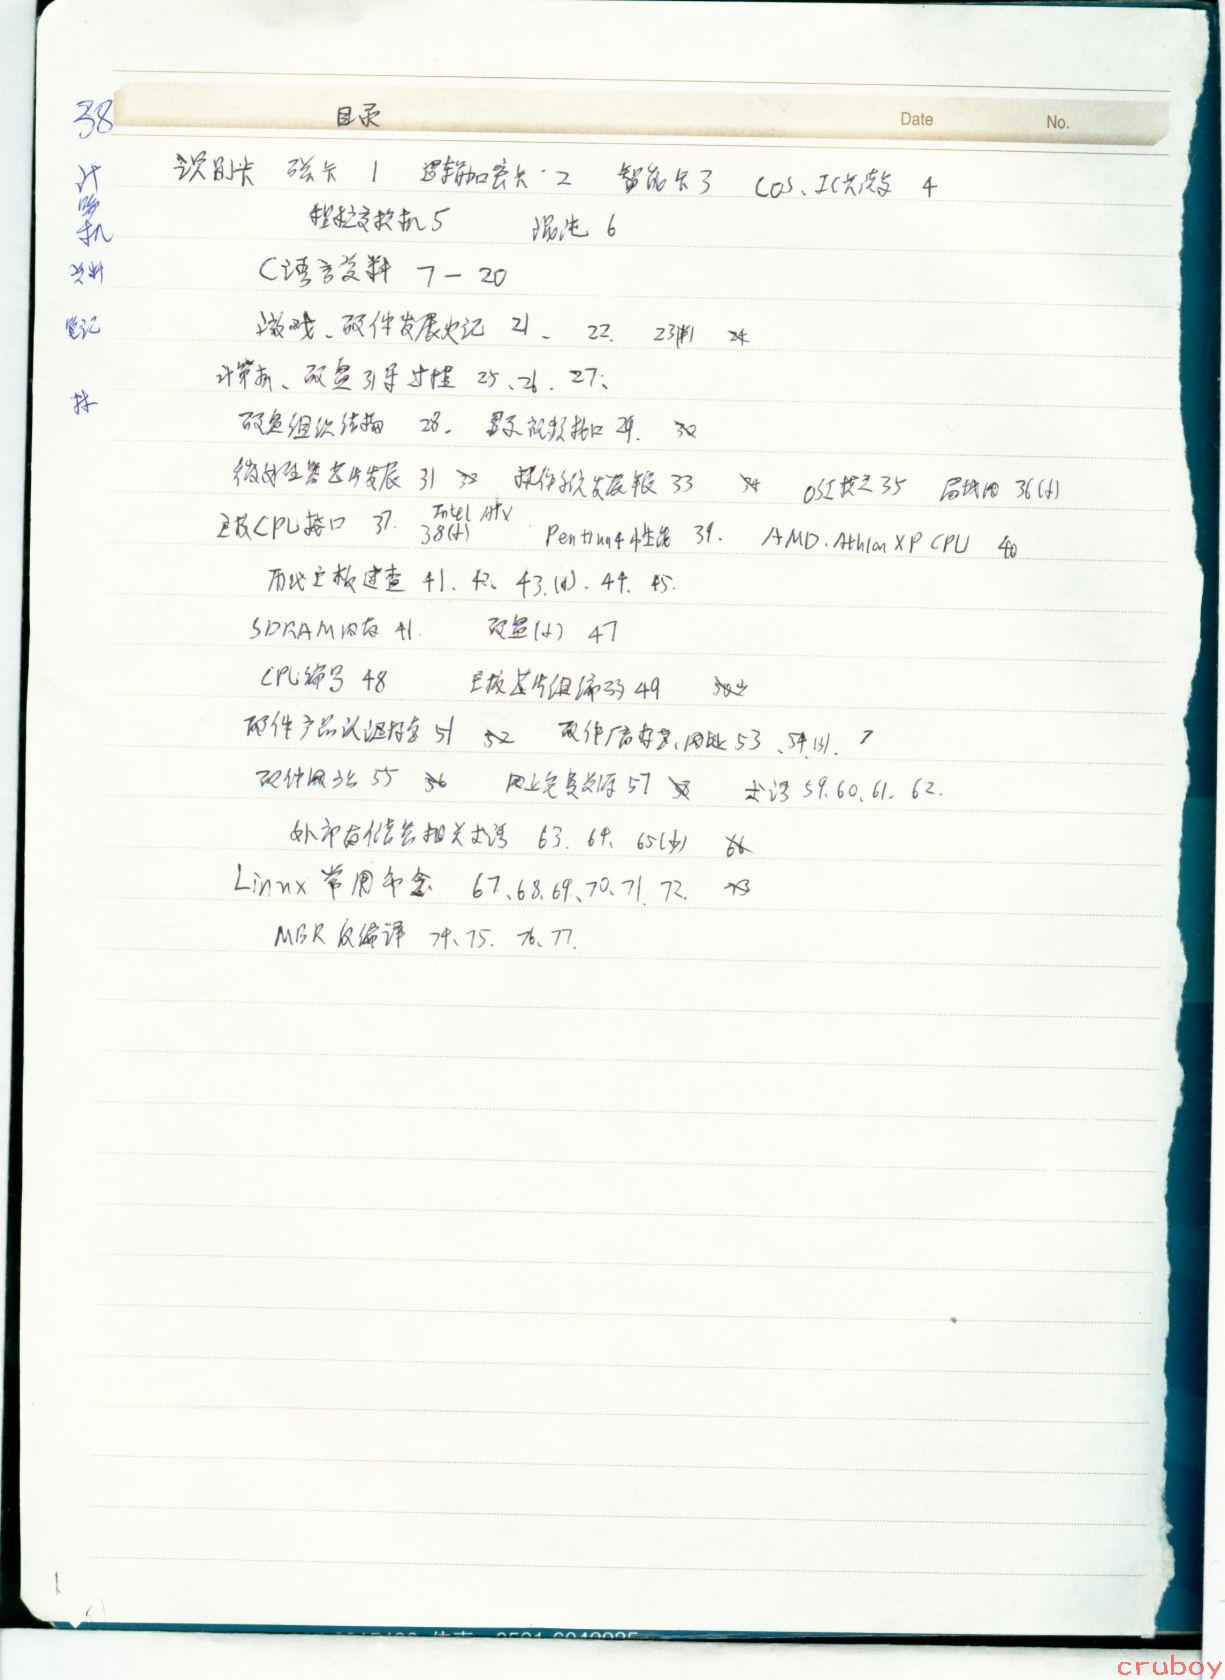 目录
Date
No.
38
计
算
机
资料
笔记
识别卡 磁卡 1 逻辑加密卡 2 智能卡 3 COS、IC卡 4
程控交换机 5 6
C语言资料 7－20
游戏、硬件发展史记 21、 22. 23 24
计算机、硬盘引导过程 25、26、27;
硬盘组织结构 28. 显示视频接口 29. 30
微处理器芯片发展 31 32 操作系统发展 33 34 OSI模式 35 局域网 36(小)
主板CPU接口 37. Intel ATX 38(小) Pentium 4 性能 39. AMD.Athlon XP CPU 40
历代主板速查 41、42、43.(小)、44、45.
SDRAM内存 41. 硬盘(小) 47
CPU编号 48 主板芯片组编号 49
硬件产品认识 51 52 硬件厂商 网址 53、54
硬件网站 55 56 网上免费资源 57 58 术语 59.60、61. 62.
外部存储器相关术语 63、64、65(小) 66
Linux 常用命令 67、68、69、70、71、72. 73
MBR 反编译 74、75. 76、77.
1
cruboy